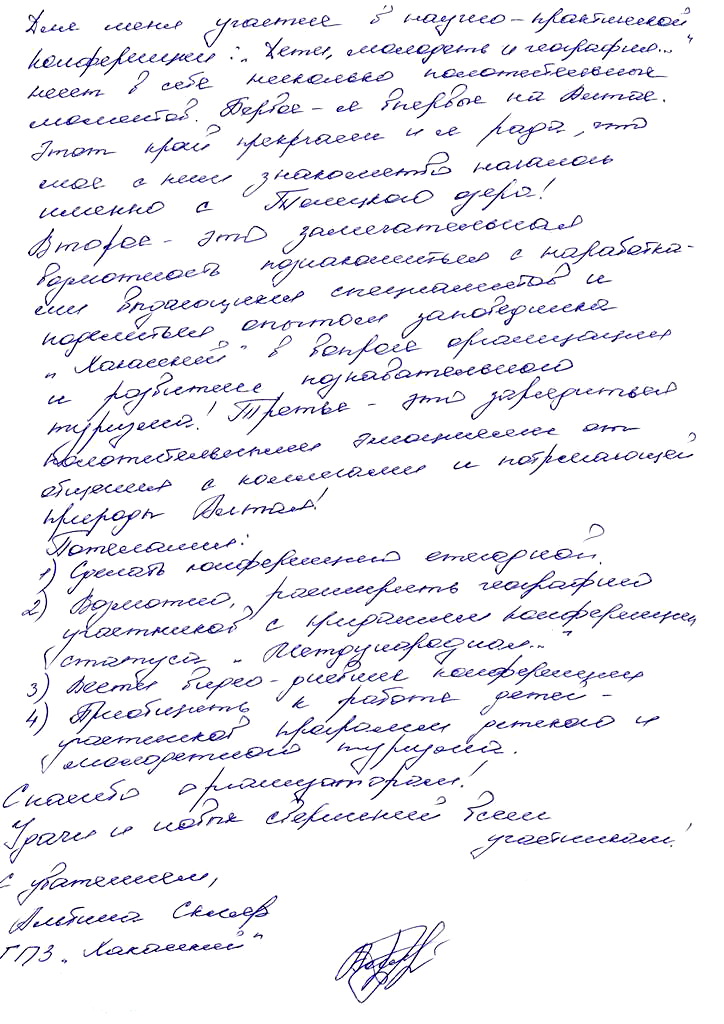 Для меня участие в научно-практической
конференции: „Дети, молодежь и география..."
несет в себе несколько положительных
моментов. Первое - я впервые на Алтае.
Этот край прекрасен и я рада, что
мое с ним знакомство началось
именно с Телецкого озера!
Второе - это замечательная
возможность познакомиться с наработка-
ми выдающихся специалистов и
поделиться опытом заповедника
„Хакасский" в вопросе организации
и развития познавательного
туризма! Третье - это зарядиться
положительными эмоциями от
общения с коллегами и потрясающей
природы Алтая!
Пожелания:
1) Сделать конференцию ежегодной.
2) Возможно, расширить географию
участников с приданием конференции
статуса „Международная..."
3) Вести видео-дневник конференции
4) Приобщать к работе детей -
участников программ детского и
молодежного туризма.
Спасибо организаторам!
Удачи и новых свершений всем
участникам!
С уважением,
Альбина
ГПЗ „Хакасский"